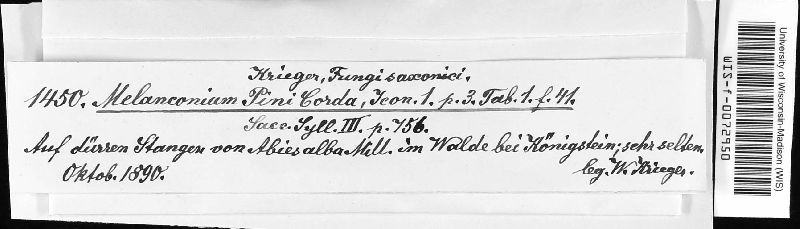 Krieger, Fungi saxonici.
1450. Melanconium Pini Corda, Icon. 1. p. 3. Tab. 1. f. 41.
Sacc. Syll. III. p. 756.
Auf dürren Stangen von Abies alba Mill. im Walde bei Königstein; sehr selten.
Oktob. 1890.
leg. W. Krieger.
University of Wisconsin-Madison (WIS)
WIS-f-0072950